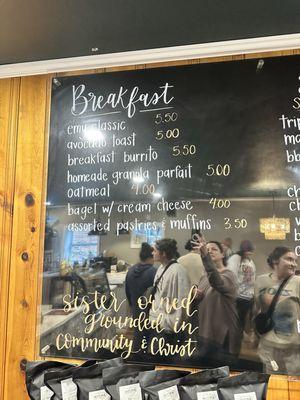 Breakfast
emu classic 5.50
avocado toast 5.00
breakfast burrito 5.50
homeade granola parfait 5.00
oatmeal 4.00
bagel w/ cream cheese 4.00
assorted pastries & muffins 3.50
sister owned
Grounded in
Community & Christ